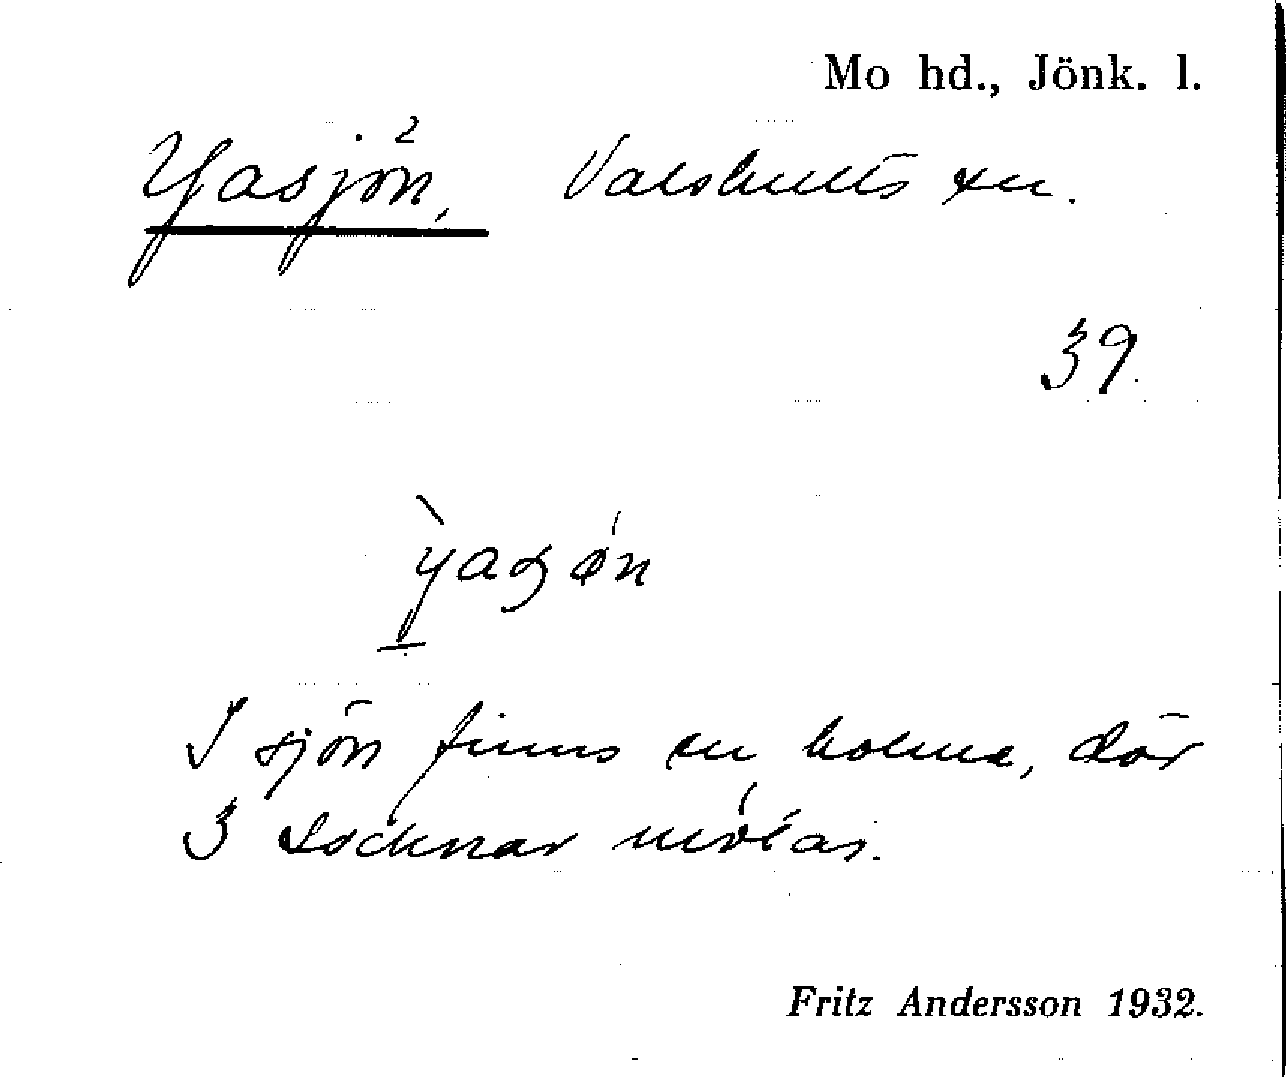 Mo hd., Jönk. l.
Yasjön, Valshults sn.
39.
I sjön finns en holme, där
3 socknar mötas.
Fritz Andersson 1932.